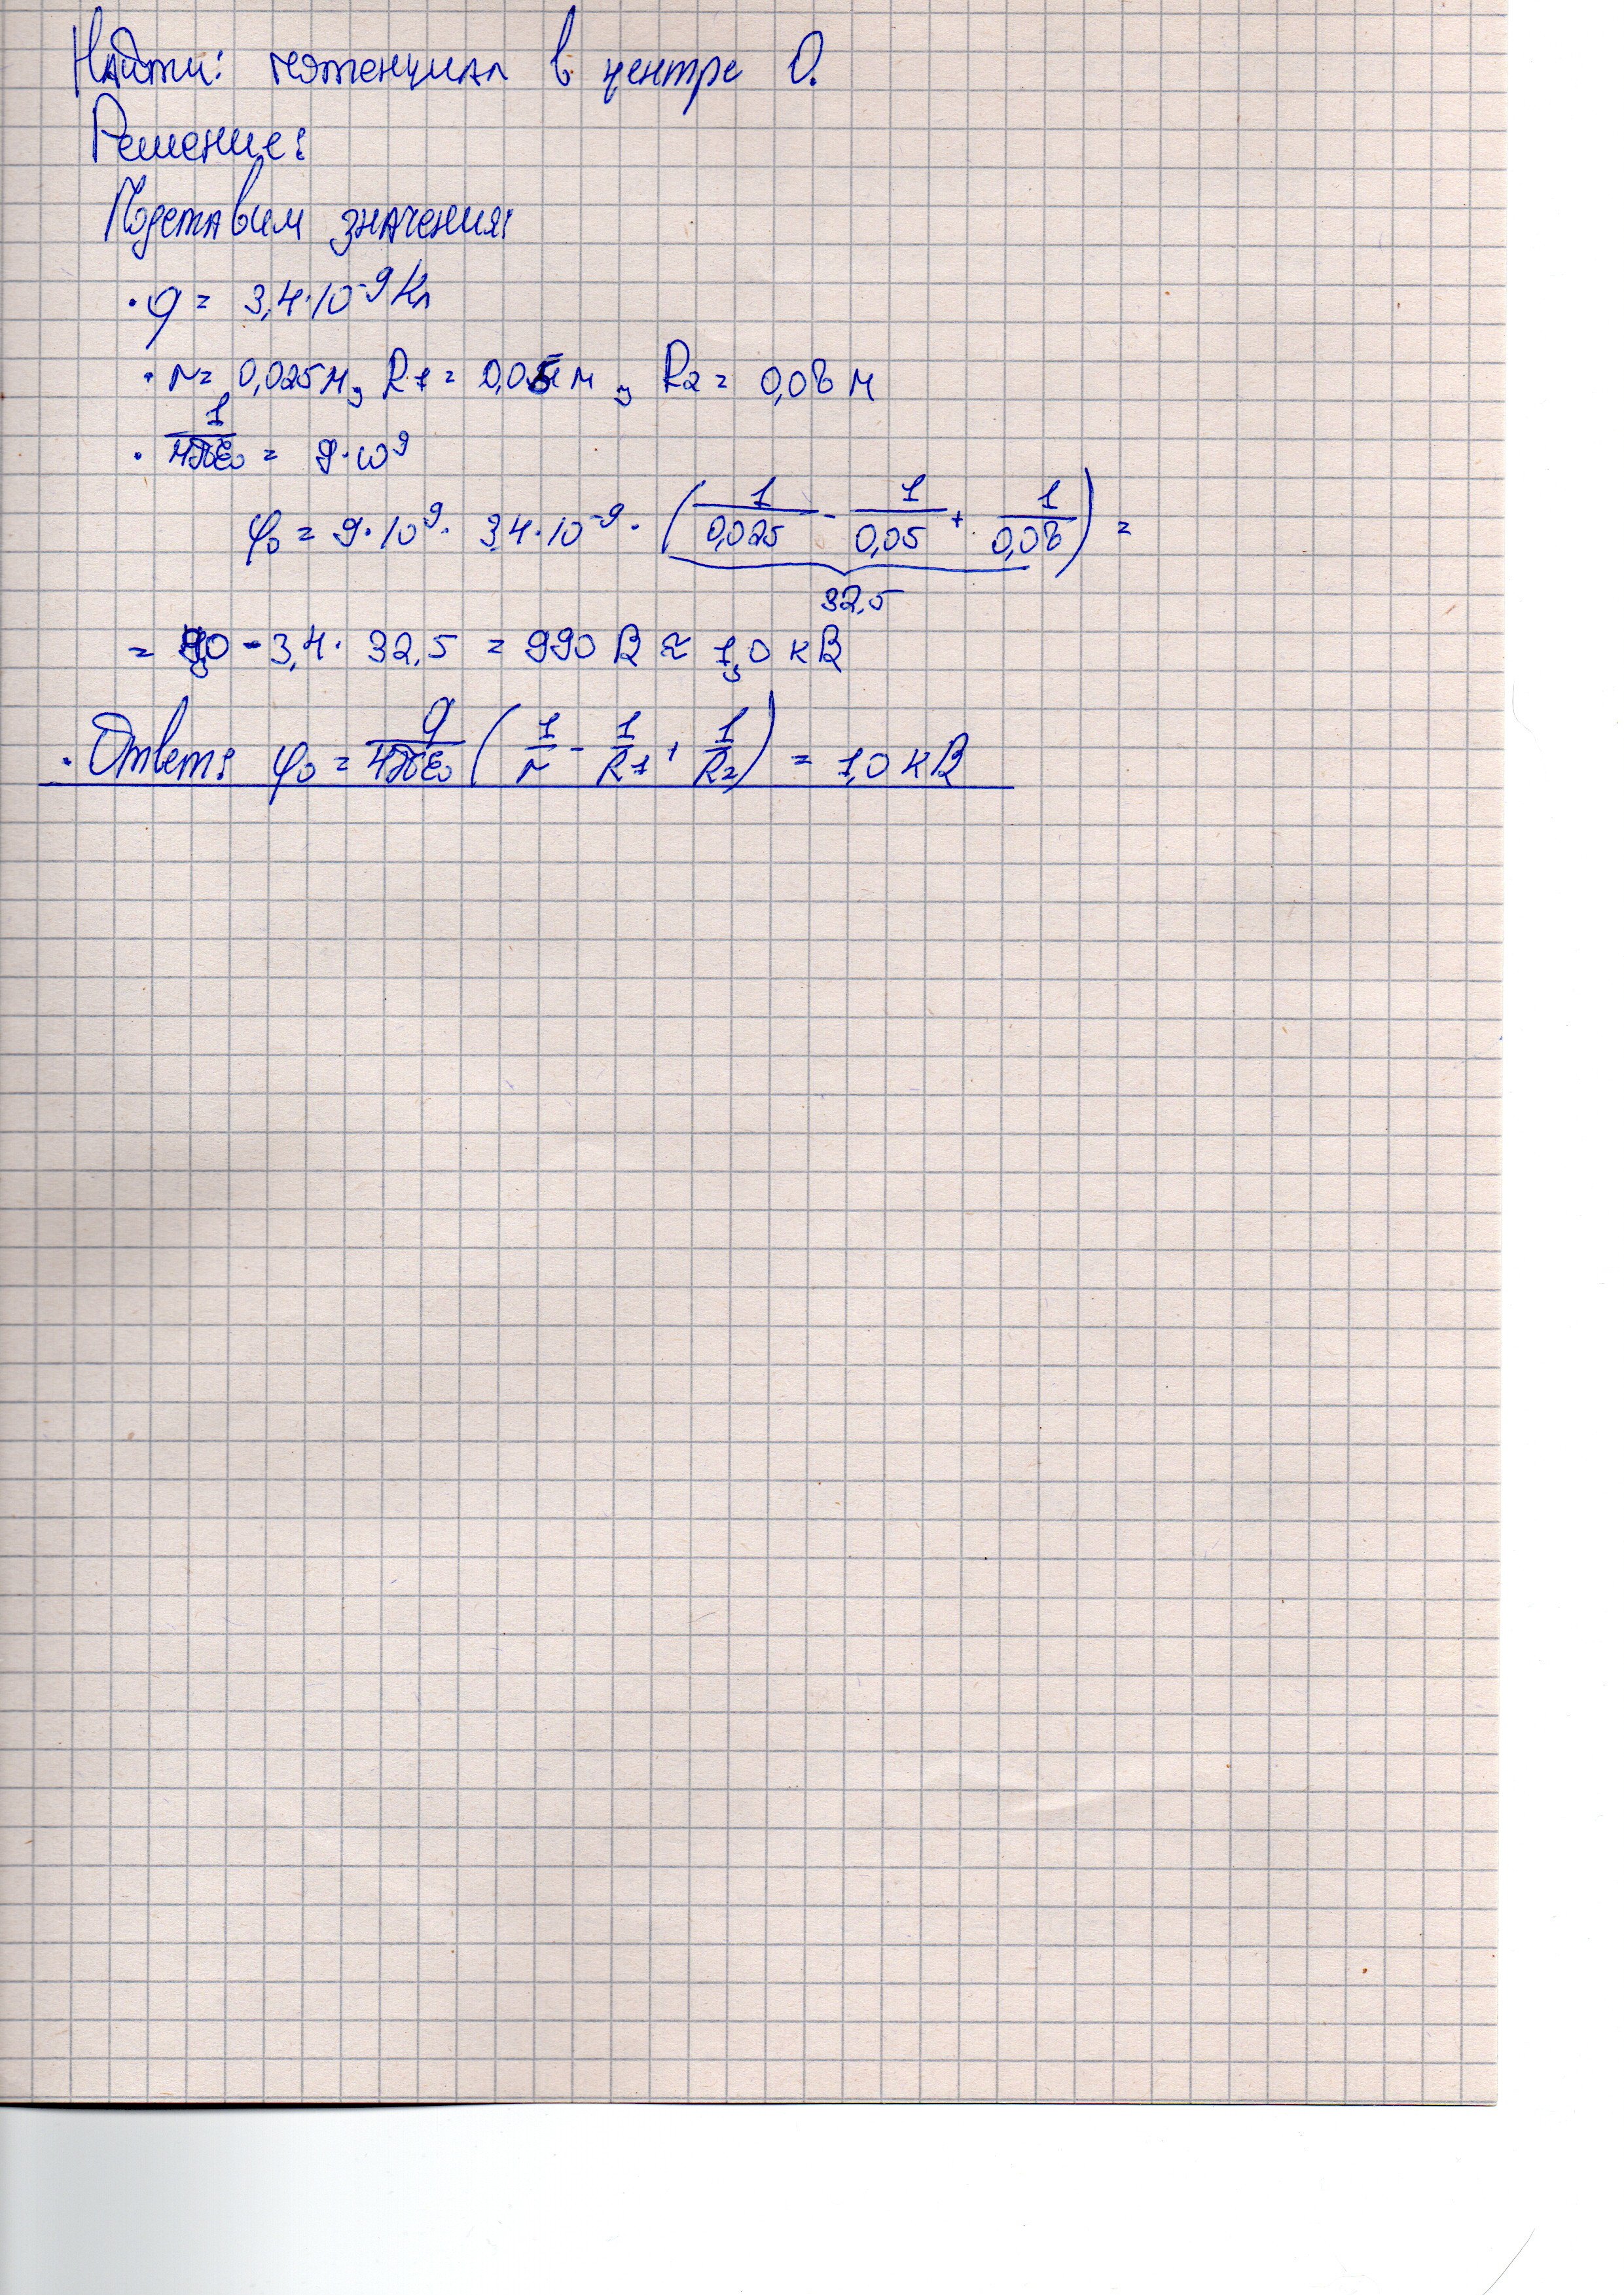 Найти: потенциал в центре O.
Решение:
Подставим значения:
· q = 3,4·10⁻⁹ Кл
· r = 0,025 м, R1 = 0,05 м, R2 = 0,08 м
· 1/(4πε₀) = 9·10⁹
φ₀ = 9·10⁹· 3,4·10⁻⁹· (1/0,025 - 1/0,05 + 1/0,08) =
32,5
= 3,4· 32,5 = 990 В ≈ 1,0 кВ
· Ответ: φ₀ = q/(4πε₀) (1/r - 1/R1 + 1/R2) = 1,0 кВ